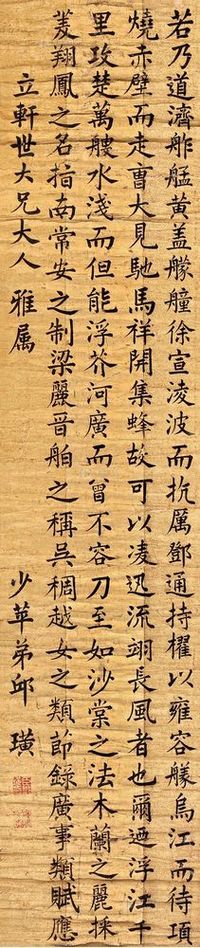 若乃道濟舴艋黄盖艨艟徐宣淩波而抗厲鄧通持櫂以雍容艤烏江而待項
燒赤壁而走曹大見馳馬祥開集蜂故可以凌迅流翊長風者也爾迺浮江千
里攻楚萬艘水淺而但能浮芥河廣而曾不容刀至如沙棠之法木蘭之麗採
菱翔鳳之名指南常安之制梁麗晉舶之稱吳稠越女之類節録廣事類賦應
立軒世大兄大人 雅属 少苹弟邱 璜